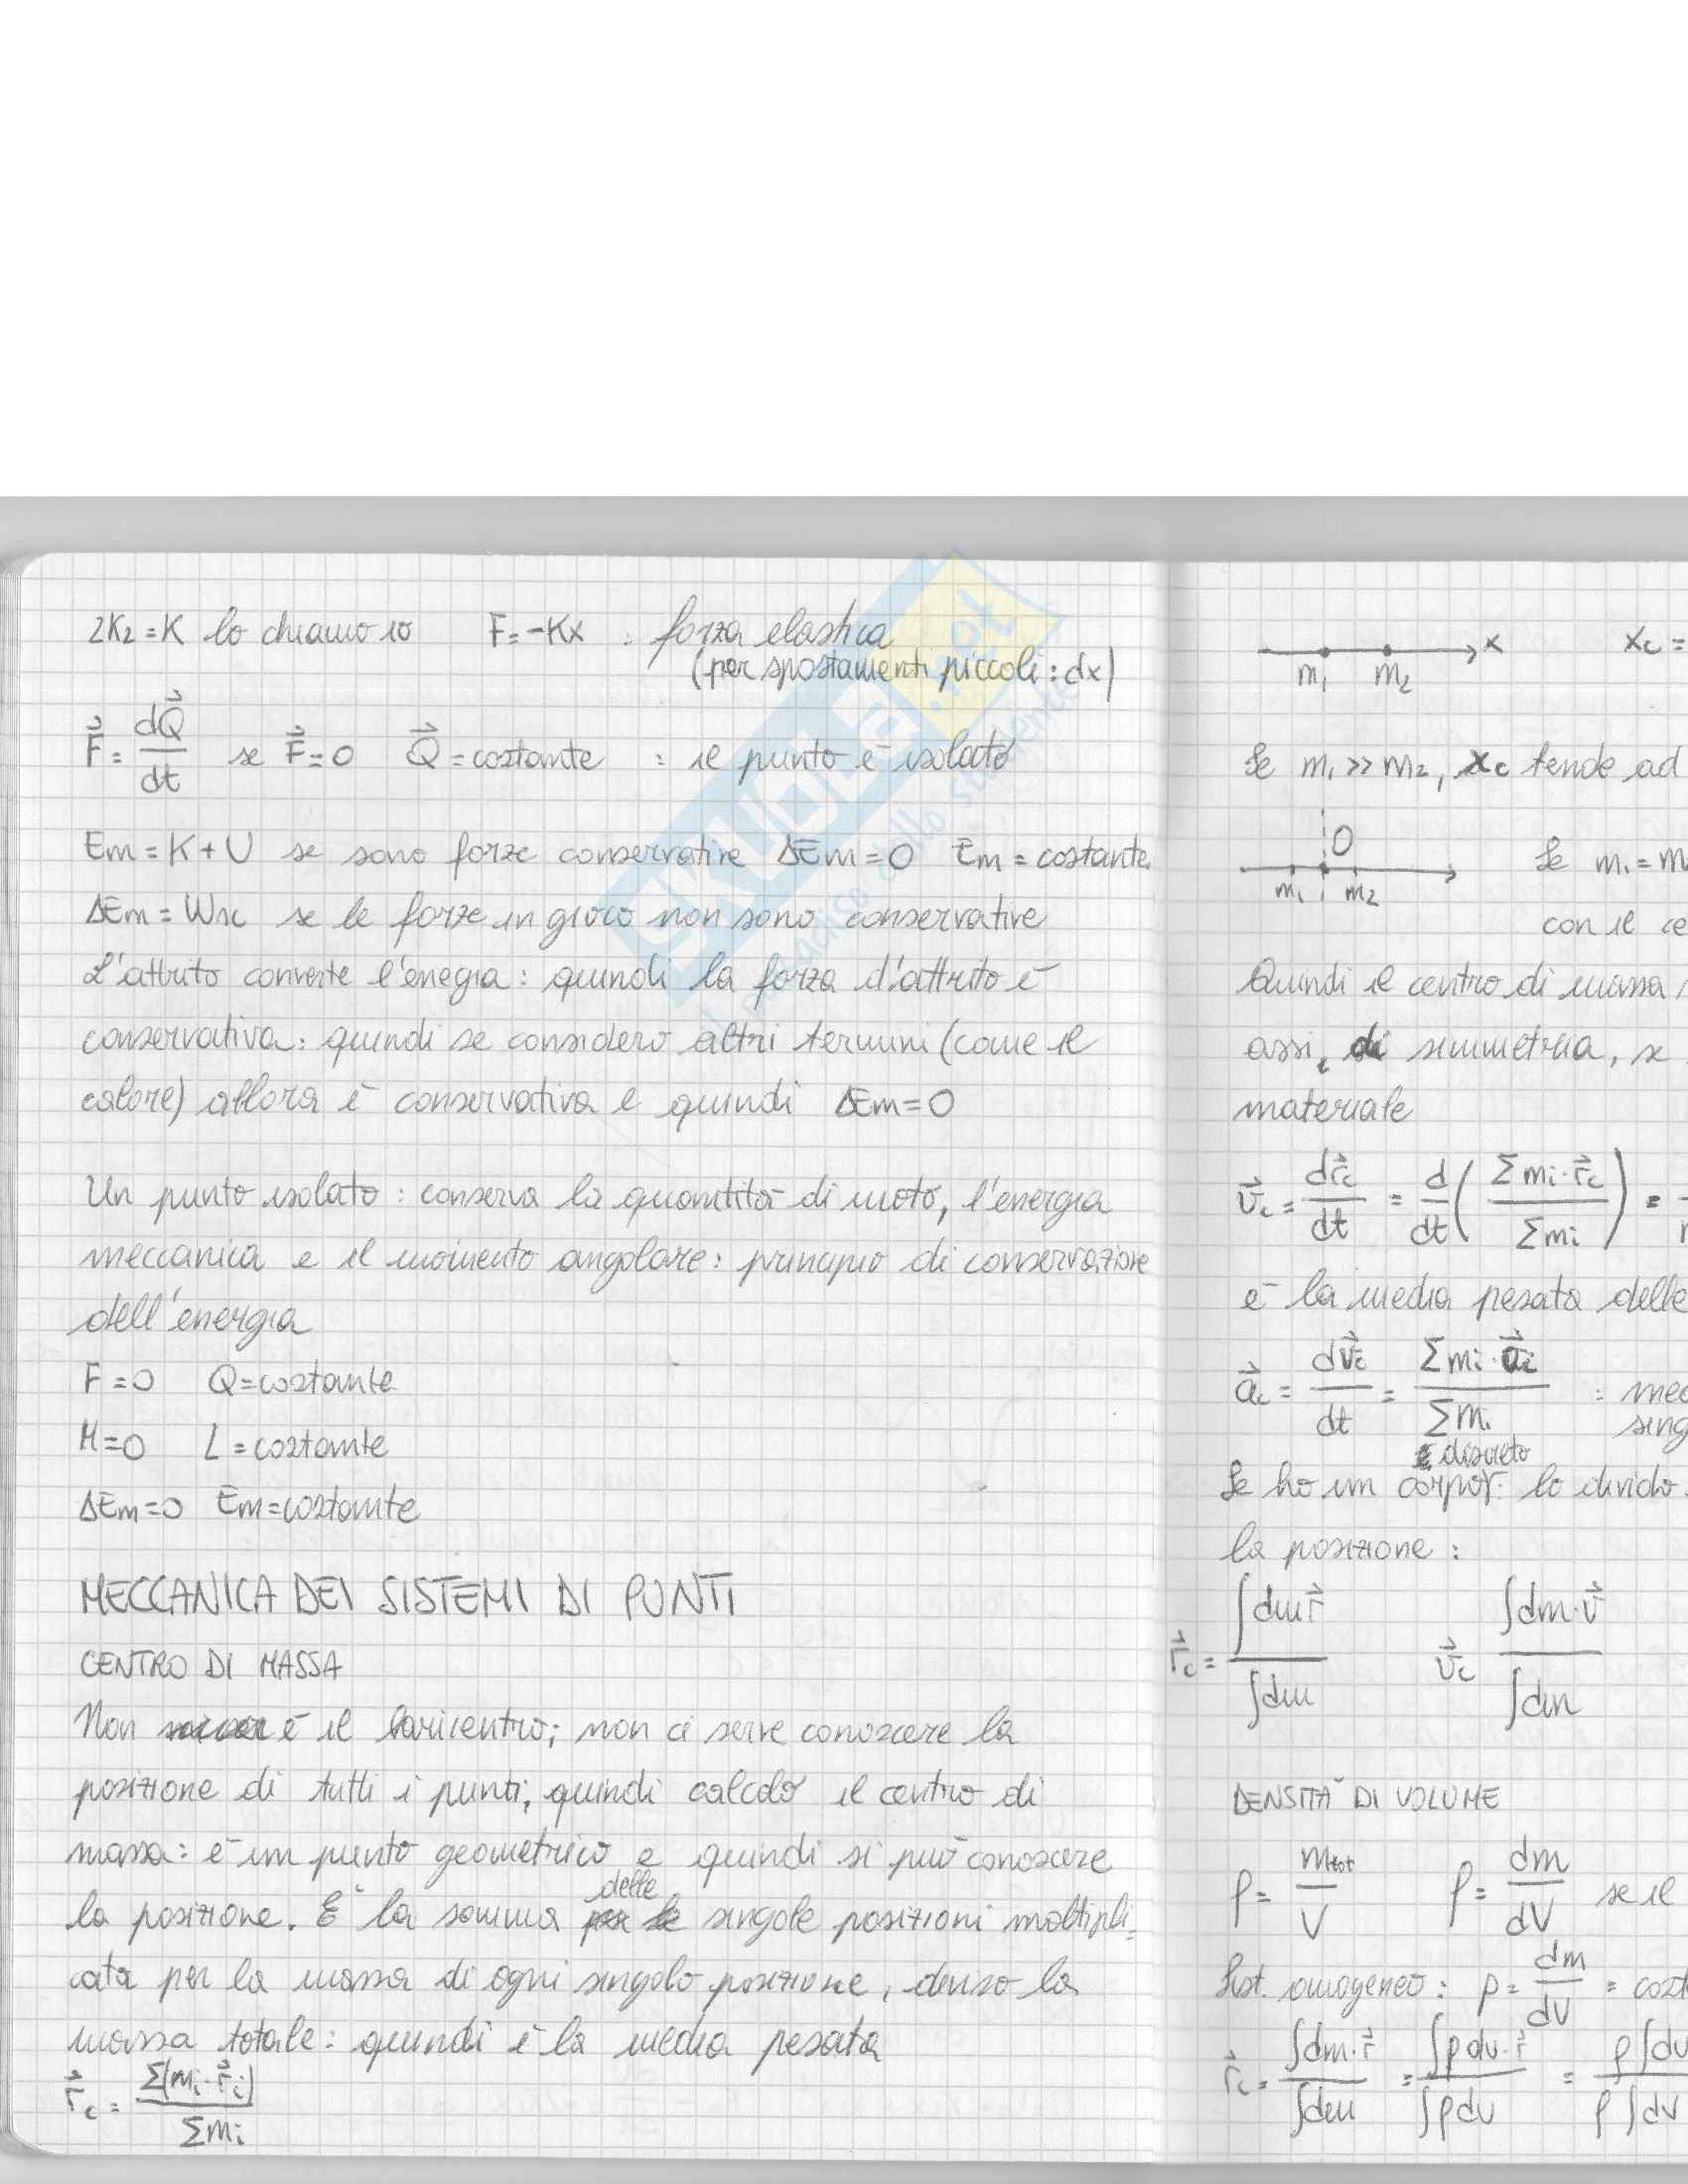 2K₂=K lo chiamo io F=-Kx : forza elastica
(per spostamenti piccoli: dx)
F⃗ = dQ⃗/dt se F⃗=0 Q⃗=costante : il punto è isolato
Em=K+U se sono forze conservative ΔEm=0 Em=costante.
ΔEm=Wnc se le forze in gioco non sono conservative
L'attrito converte l'enegia: quindi la forza d'attrito è
conservativa: quindi se considero altri termini (come il
calore) allora è conservativa e quindi ΔEm=0
Un punto isolato: conserva la quantità di moto, l'energia
meccanica e il momento angolare: principio di conservazione
dell'energia
F=0 Q=costante
M=0 L=costante
ΔEm=0 Em=costante
MECCANICA DEI SISTEMI DI PUNTI
CENTRO DI MASSA
Non è il baricentro; non ci serve conoscere la
posizione di tutti i punti, quindi calcolo il centro di
massa: è un punto geometrico e quindi si può conoscere
la posizione. È la somma delle singole posizioni moltipli-
cata per la massa di ogni singolo posizione, diviso la
massa totale: quindi è la media pesata
r⃗c = Σ(mi·r⃗i)/Σmi
m₁ m₂ x xc =
Se m₁>>m₂, xc tende ad
O
m₁ m₂ Se m₁=m
con il ce
Quindi il centro di massa
assi, di simmetria, se
materiale
v⃗c = dr⃗c/dt = d/dt (Σmi·r⃗c/Σmi) =
è la media pesata delle
a⃗c = dv⃗c/dt = Σmi·a⃗i/Σmi : med
sing
discreto
Se ho un corpo: lo divido
la posizione:
r⃗c = ∫dm r⃗/∫dm v⃗c ∫dm·v⃗/∫dm
DENSITÀ DI VOLUME
ρ = mtot/V ρ = dm/dV se il
Sist. omogeneo: ρ = dm/dV = cost
r⃗c = ∫dm·r⃗/∫dm = ∫ρdv·r⃗/∫ρdv = ρ∫dv/ρ∫dv
SKUOLA.net